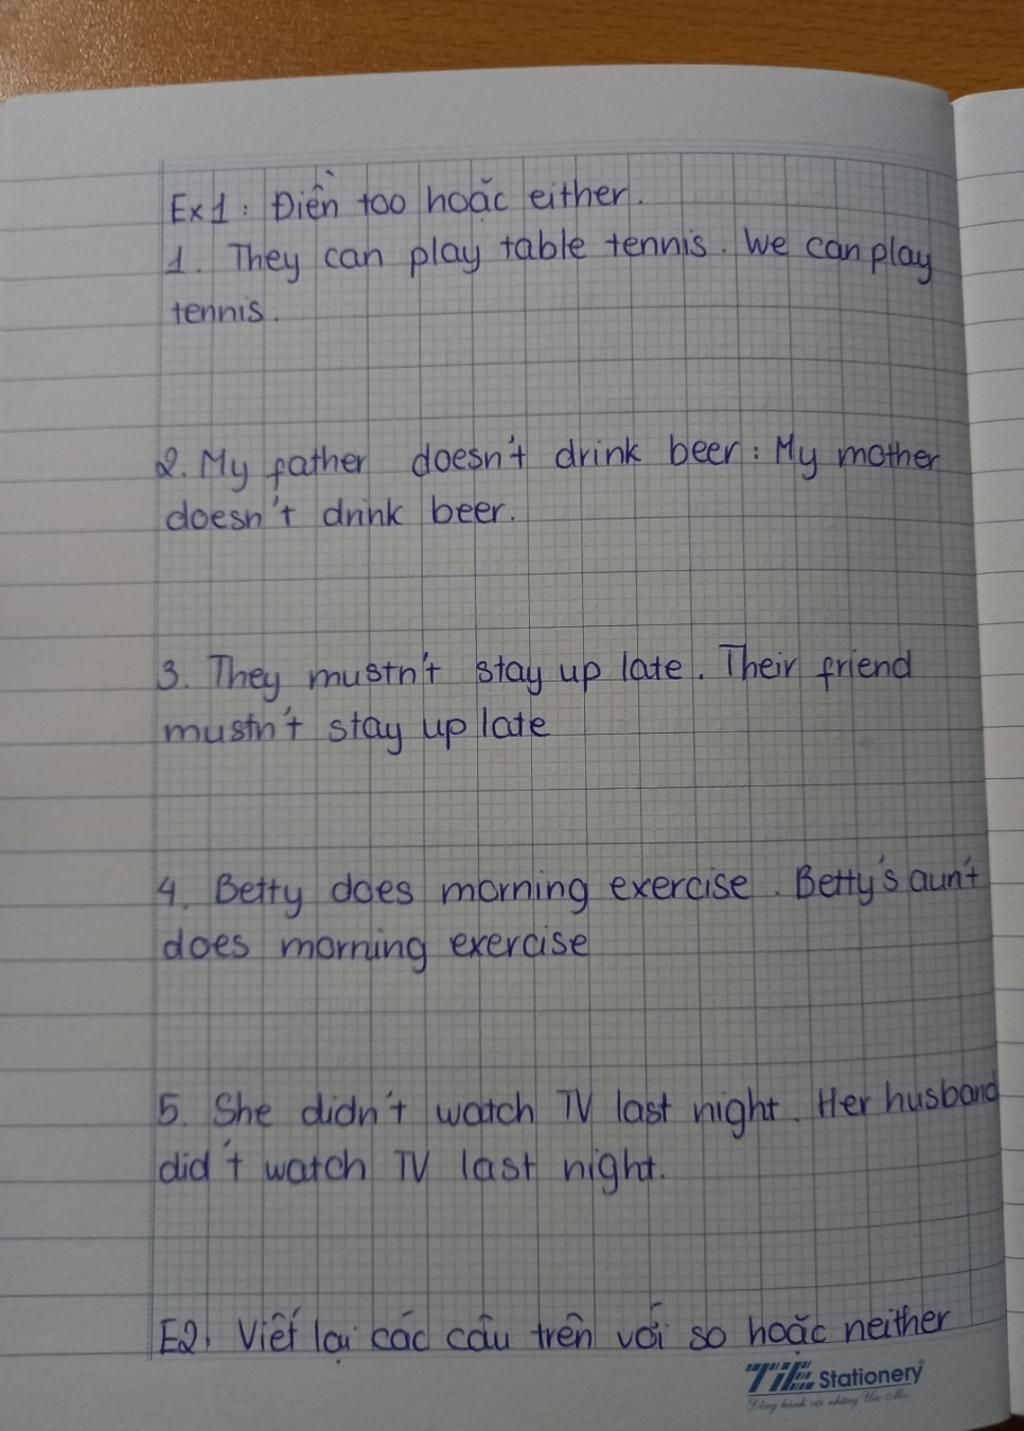 Ex1: Điền too hoặc either.
1. They can play table tennis. We can play
tennis.
2. My father doesn't drink beer: My mother
doesn't drink beer.
3. They mustn't stay up late. Their friend
mustn't stay up late
4. Betty does morning exercise. Betty's aunt
does morning exercise
5. She didn't watch TV last night. Her husband
did't watch TV last night.
E2. Viết lại các câu trên với so hoặc neither
TiE Stationery
Đồng hành với những Ước Mơ